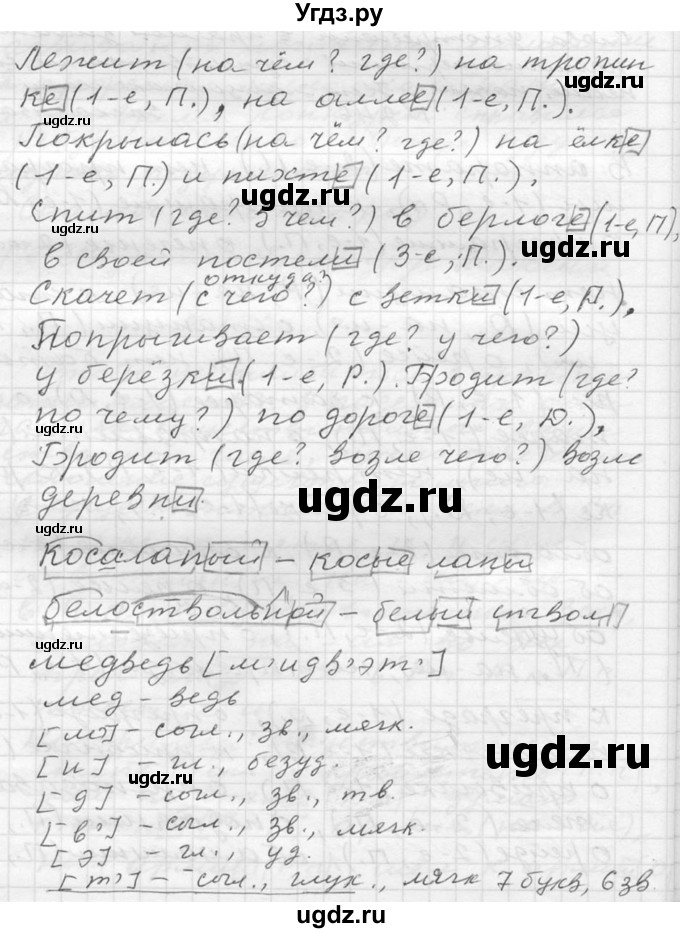 Угдз.ру
Лежит (на чём? где?) на тропин
ке (1-е, П.), на аллее (1-е, П.).
Покрылась (на чём? где?) на ёлке
(1-е, П.) и пихте (1-е, П.),
угдз.ru
Спит (где? в чём?) в берлоге (1-е, П),
в своей постели (3-е, П.).
откуда?
Скачет (с чего?) с ветки (1-е, Д.),
Попрыгивает (где? у чего?)
у берёзки (1-е, Р.). Бродит (где?
по чему?) по дороге (1-е, Д.),
Бродит (где? возле чего?) возле
деревни.
ugdz.ru
Косалапый – косые лапы
белоствольной – белый ствол
ugdz.ru
медведь [м'идв'эт']
мед - ведь
[м'] – согл., зв., мягк.
[и] – гл., безуд.
ugdz.ru
[д] – согл., зв., тв.
[в'] – согл., зв., мягк.
[э] – гл., уд.
[т'] – согл., глух., мягк 7 букв, 6 зв
ugdz.ru